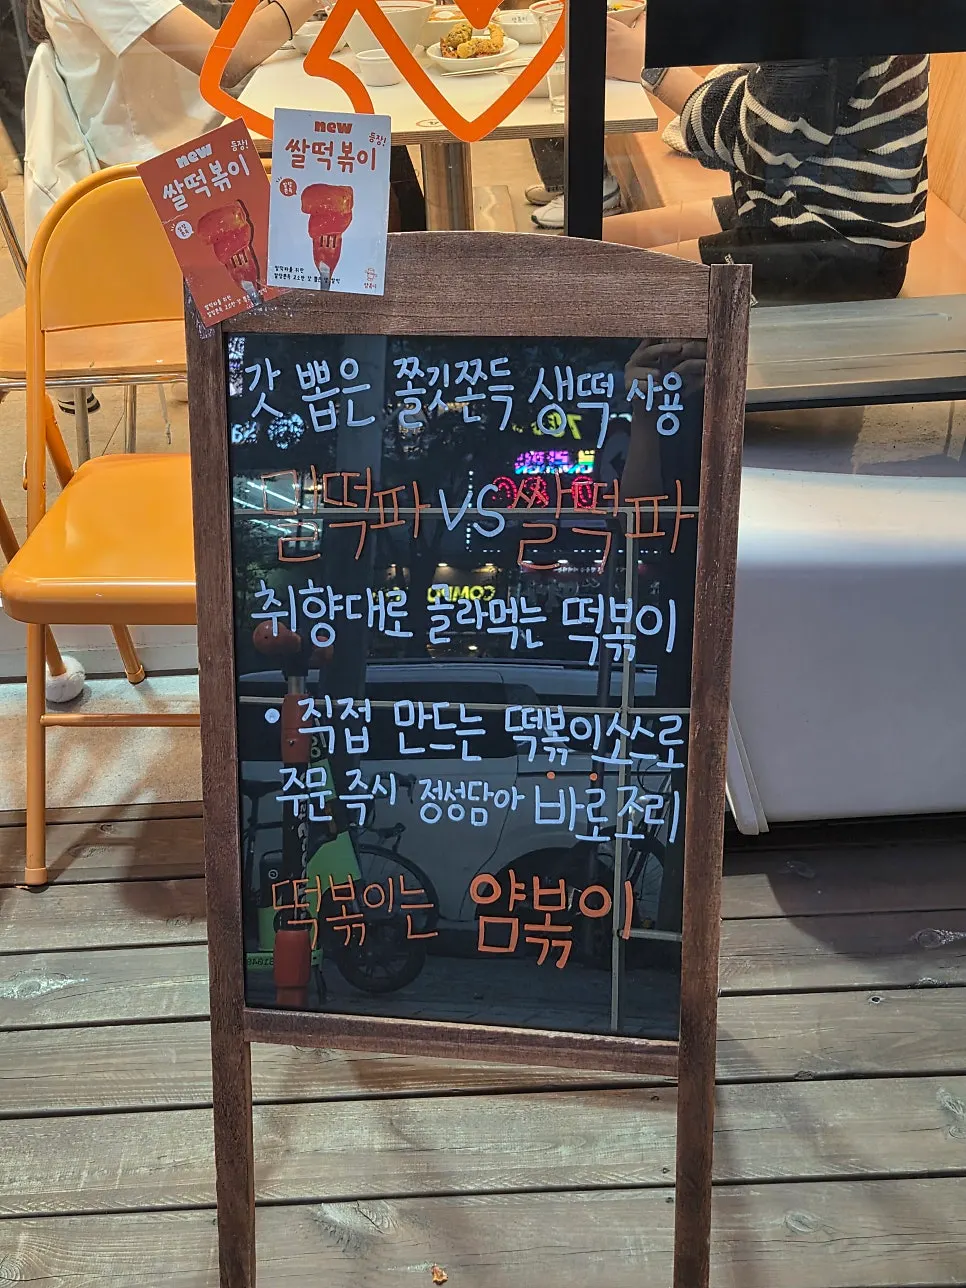 new
등장!
쌀떡볶이
new
등장!
쌀떡볶이
갓 뽑은 쫄깃쫀득 생떡 사용
밀떡파 VS 쌀떡파
취향대로 골라먹는 떡볶이
• 직접 만드는 떡볶이소스로
주문 즉시 정성담아 바로조리
떡볶이는 얌볶이